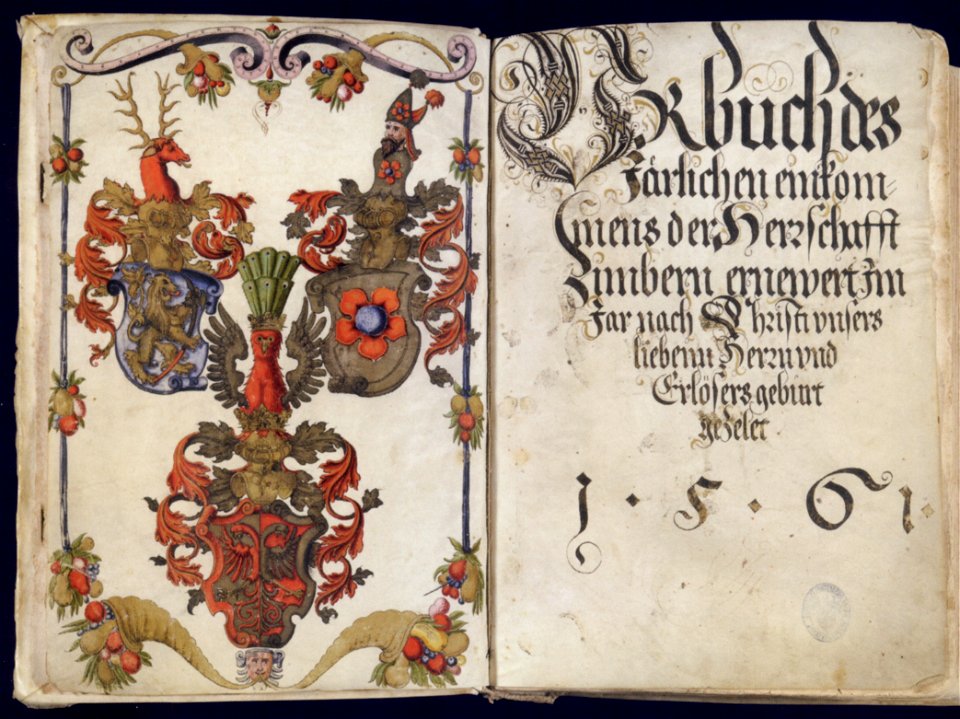 Urbuch des
Järlichen einkom-
mens der Herrschafft
Zimbern ernewert Im
Jar nach Christi vnsers
liebenn Herrn vnd
Erlösers geburt
gezelet
1·5·61·